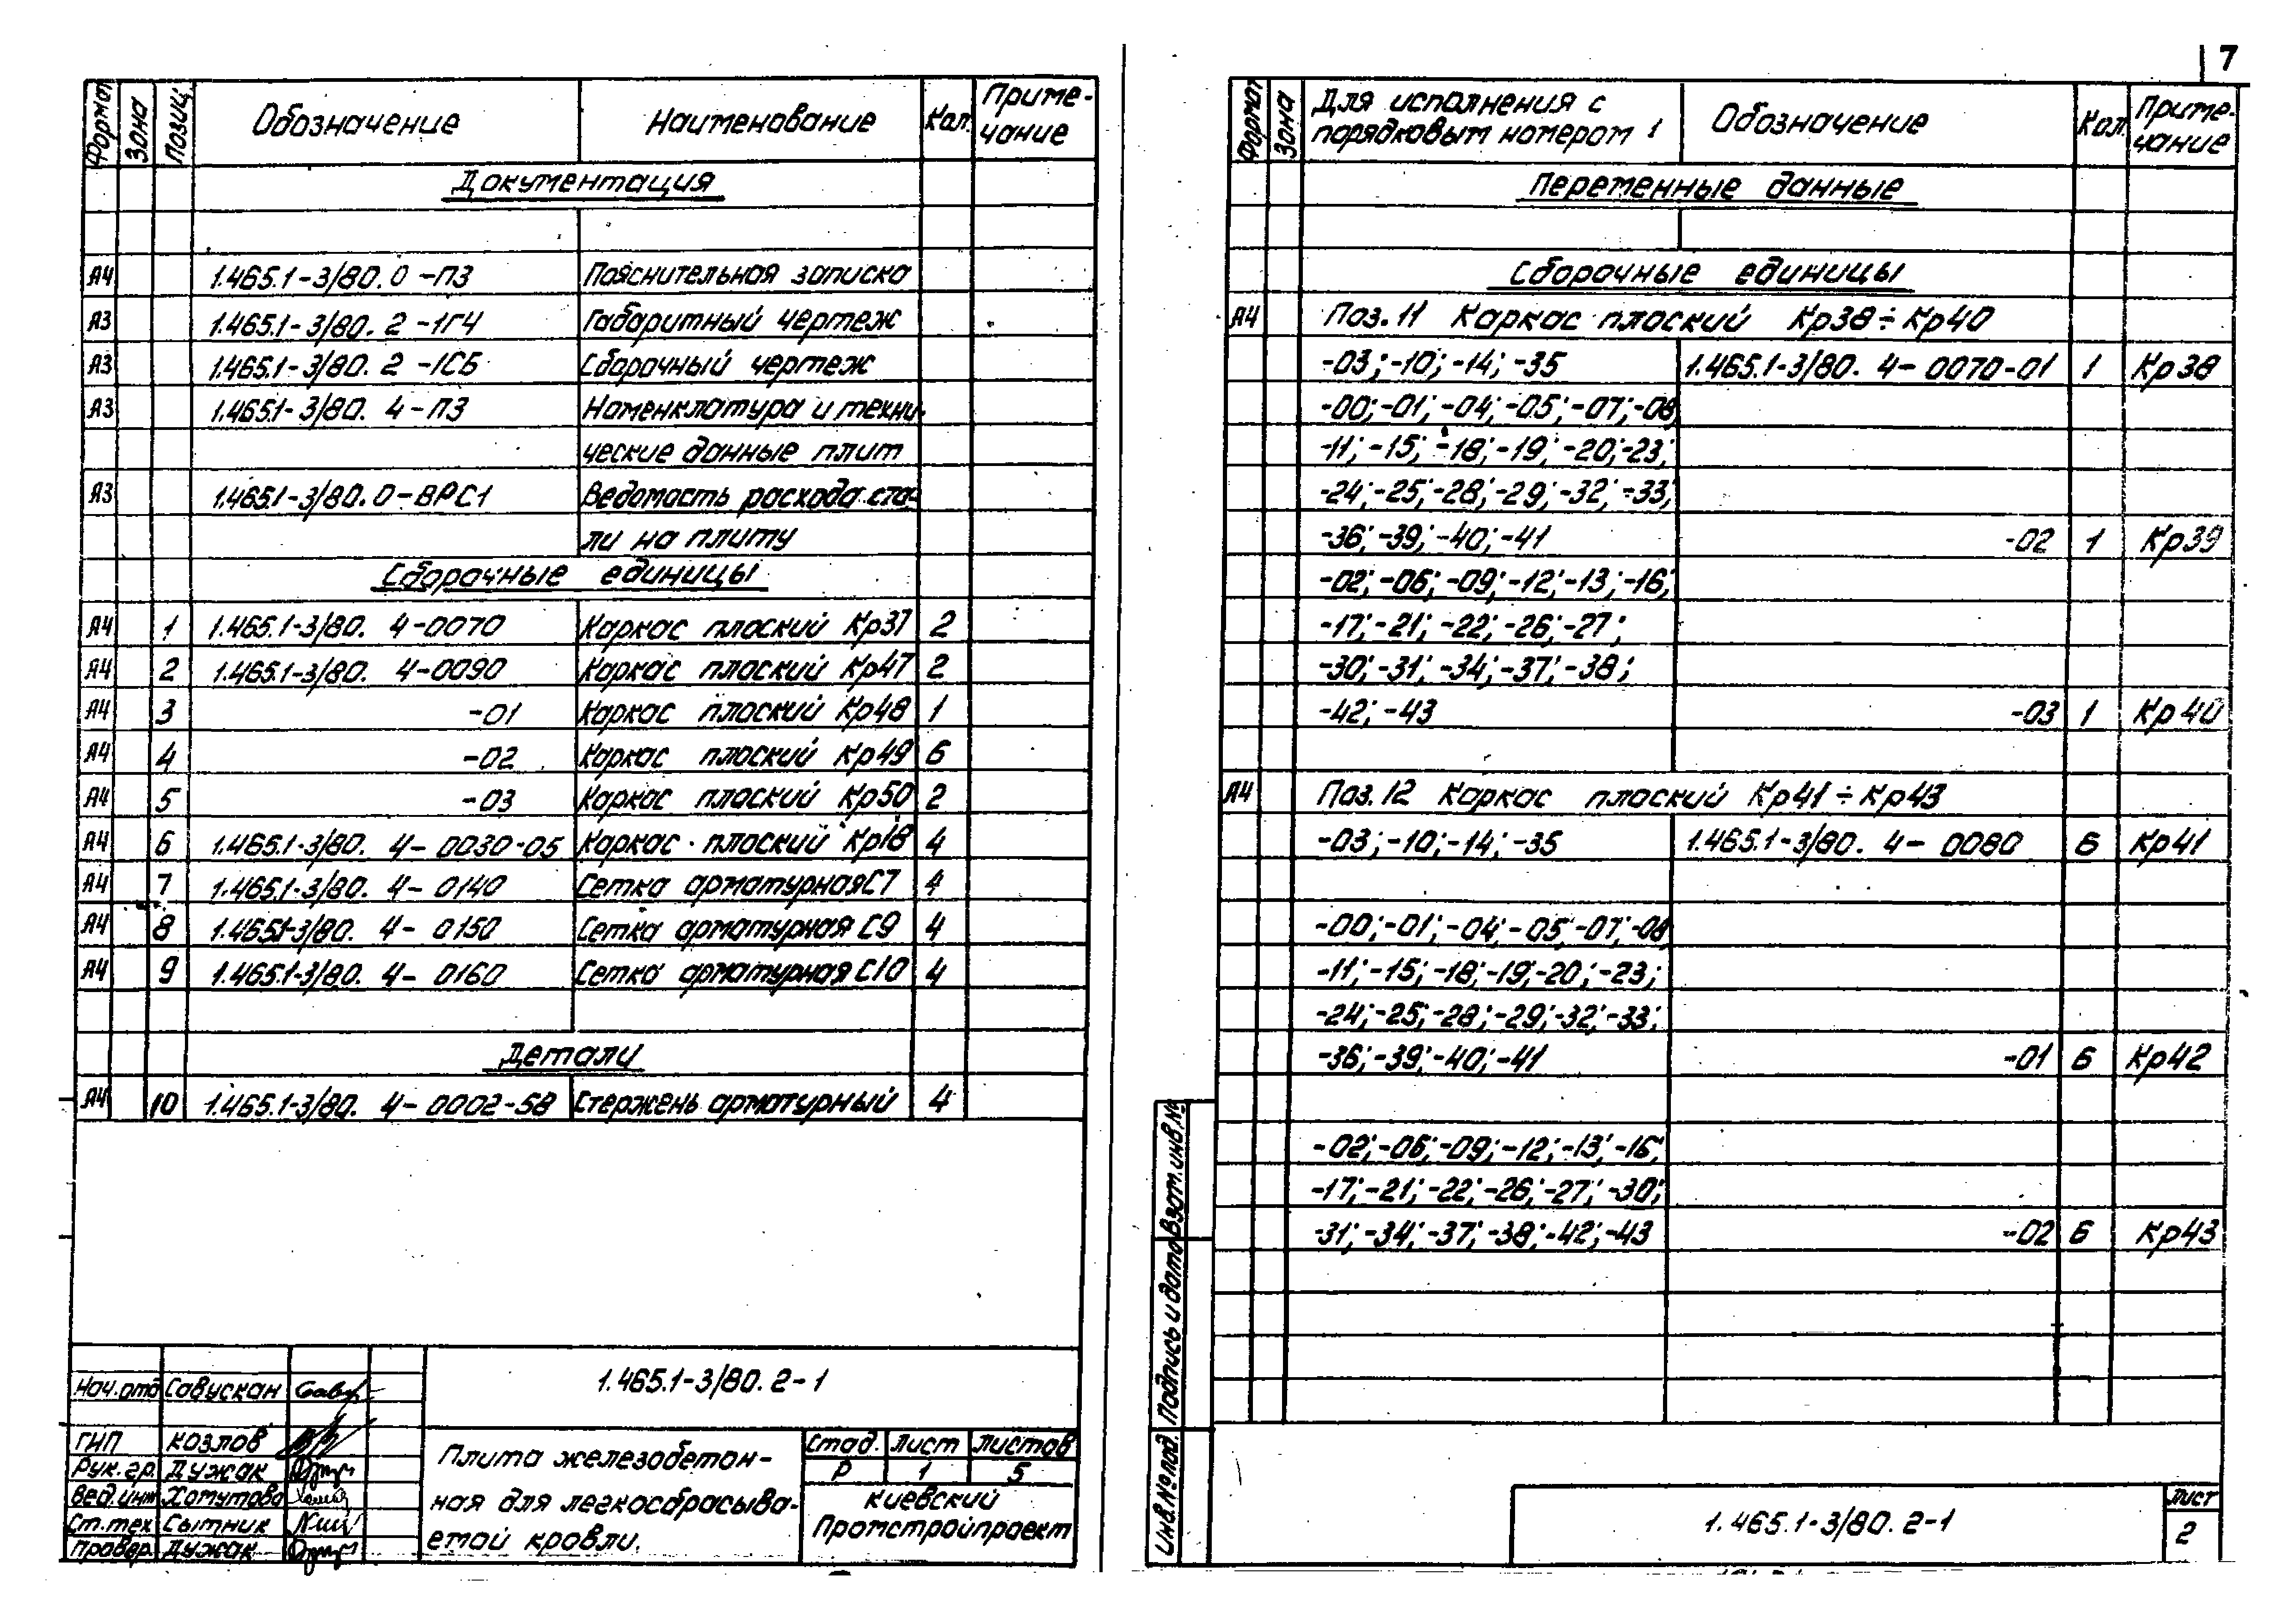 7
Формат Зона Позиц. Обозначение Наименование Кол. Приме-
чание
Документация
А4 1.465.1-3/80.0-ПЗ Пояснительная записка
А3 1.465.1-3/80.2-1ГЧ Габаритный чертеж
А3 1.465.1-3/80.2-1СБ Сборочный чертеж
А3 1.465.1-3/80. 4-ПЗ Номенклатура и техни-
ческие данные плит
А3 1.465.1-3/80.0-ВРС1 Ведомость расхода ста-
ли на плиту
Сборочные единицы
А4 1 1.465.1-3/80. 4-0070 Каркас плоский Кр37 2
А4 2 1.465.1-3/80. 4-0090 Каркас плоский Кр47 2
А4 3 -01 Каркас плоский Кр48 1
А4 4 -02 Каркас плоский Кр49 6
А4 5 -03 Каркас плоский Кр50 2
А4 6 1.465.1-3/80. 4-0030-05 Каркас плоский Кр18 4
А4 7 1.465.1-3/80. 4-0140 Сетка арматурная С7 4
А4 8 1.465.1-3/80. 4-0150 Сетка арматурная С9 4
А4 9 1.465.1-3/80. 4-0160 Сетка арматурная С10 4
Детали
А4 10 1.465.1-3/80. 4-0002-58 Стержень арматурный 4
1.465.1-3/80.2-1
Нач.отд Савускан
ГИП Козлов
Рук.гр. Дужак
Вед.инж Хомутова
Ст.тех Сытник
Провер. Дужак
Плита железобетон-
ная для легкосбрасыва-
емой кровли.
Стад. Лист Листов
Р 1 5
Киевский
Промстройпроект
Формат Зона Для исполнения с
порядковым номером 1 Обозначение Кол. Приме-
чание
Переменные данные
Сборочные единицы
А4 Поз.11 Каркас плоский Кр38÷Кр40
-03;-10;-14;-35 1.465.1-3/80. 4-0070-01 1 Кр38
-00;-01;-04;-05;-07;-08;
-11;-15;-18;-19;-20;-23;
-24;-25;-28;-29;-32;-33;
-36;-39;-40;-41 -02 1 Кр39
-02;-06;-09;-12;-13;-16;
-17;-21;-22;-26;-27;
-30;-31;-34;-37;-38;
-42;-43 -03 1 Кр40
А4 Поз.12 Каркас плоский Кр41÷Кр43
-03;-10;-14;-35 1.465.1-3/80. 4-0080 6 Кр41
-00;-01;-04;-05;-07;-08
-11;-15;-18;-19;-20;-23;
-24;-25;-28;-29;-32;-33;
-36;-39;-40;-41 -01 6 Кр42
-02;-06;-09;-12;-13;-16;
-17;-21;-22;-26;-27;-30;
-31;-34;-37;-38;-42;-43 -02 6 Кр43
Инв.№ под. Подпись и дата Взат.инв.№
1.465.1-3/80.2-1
Лист
2